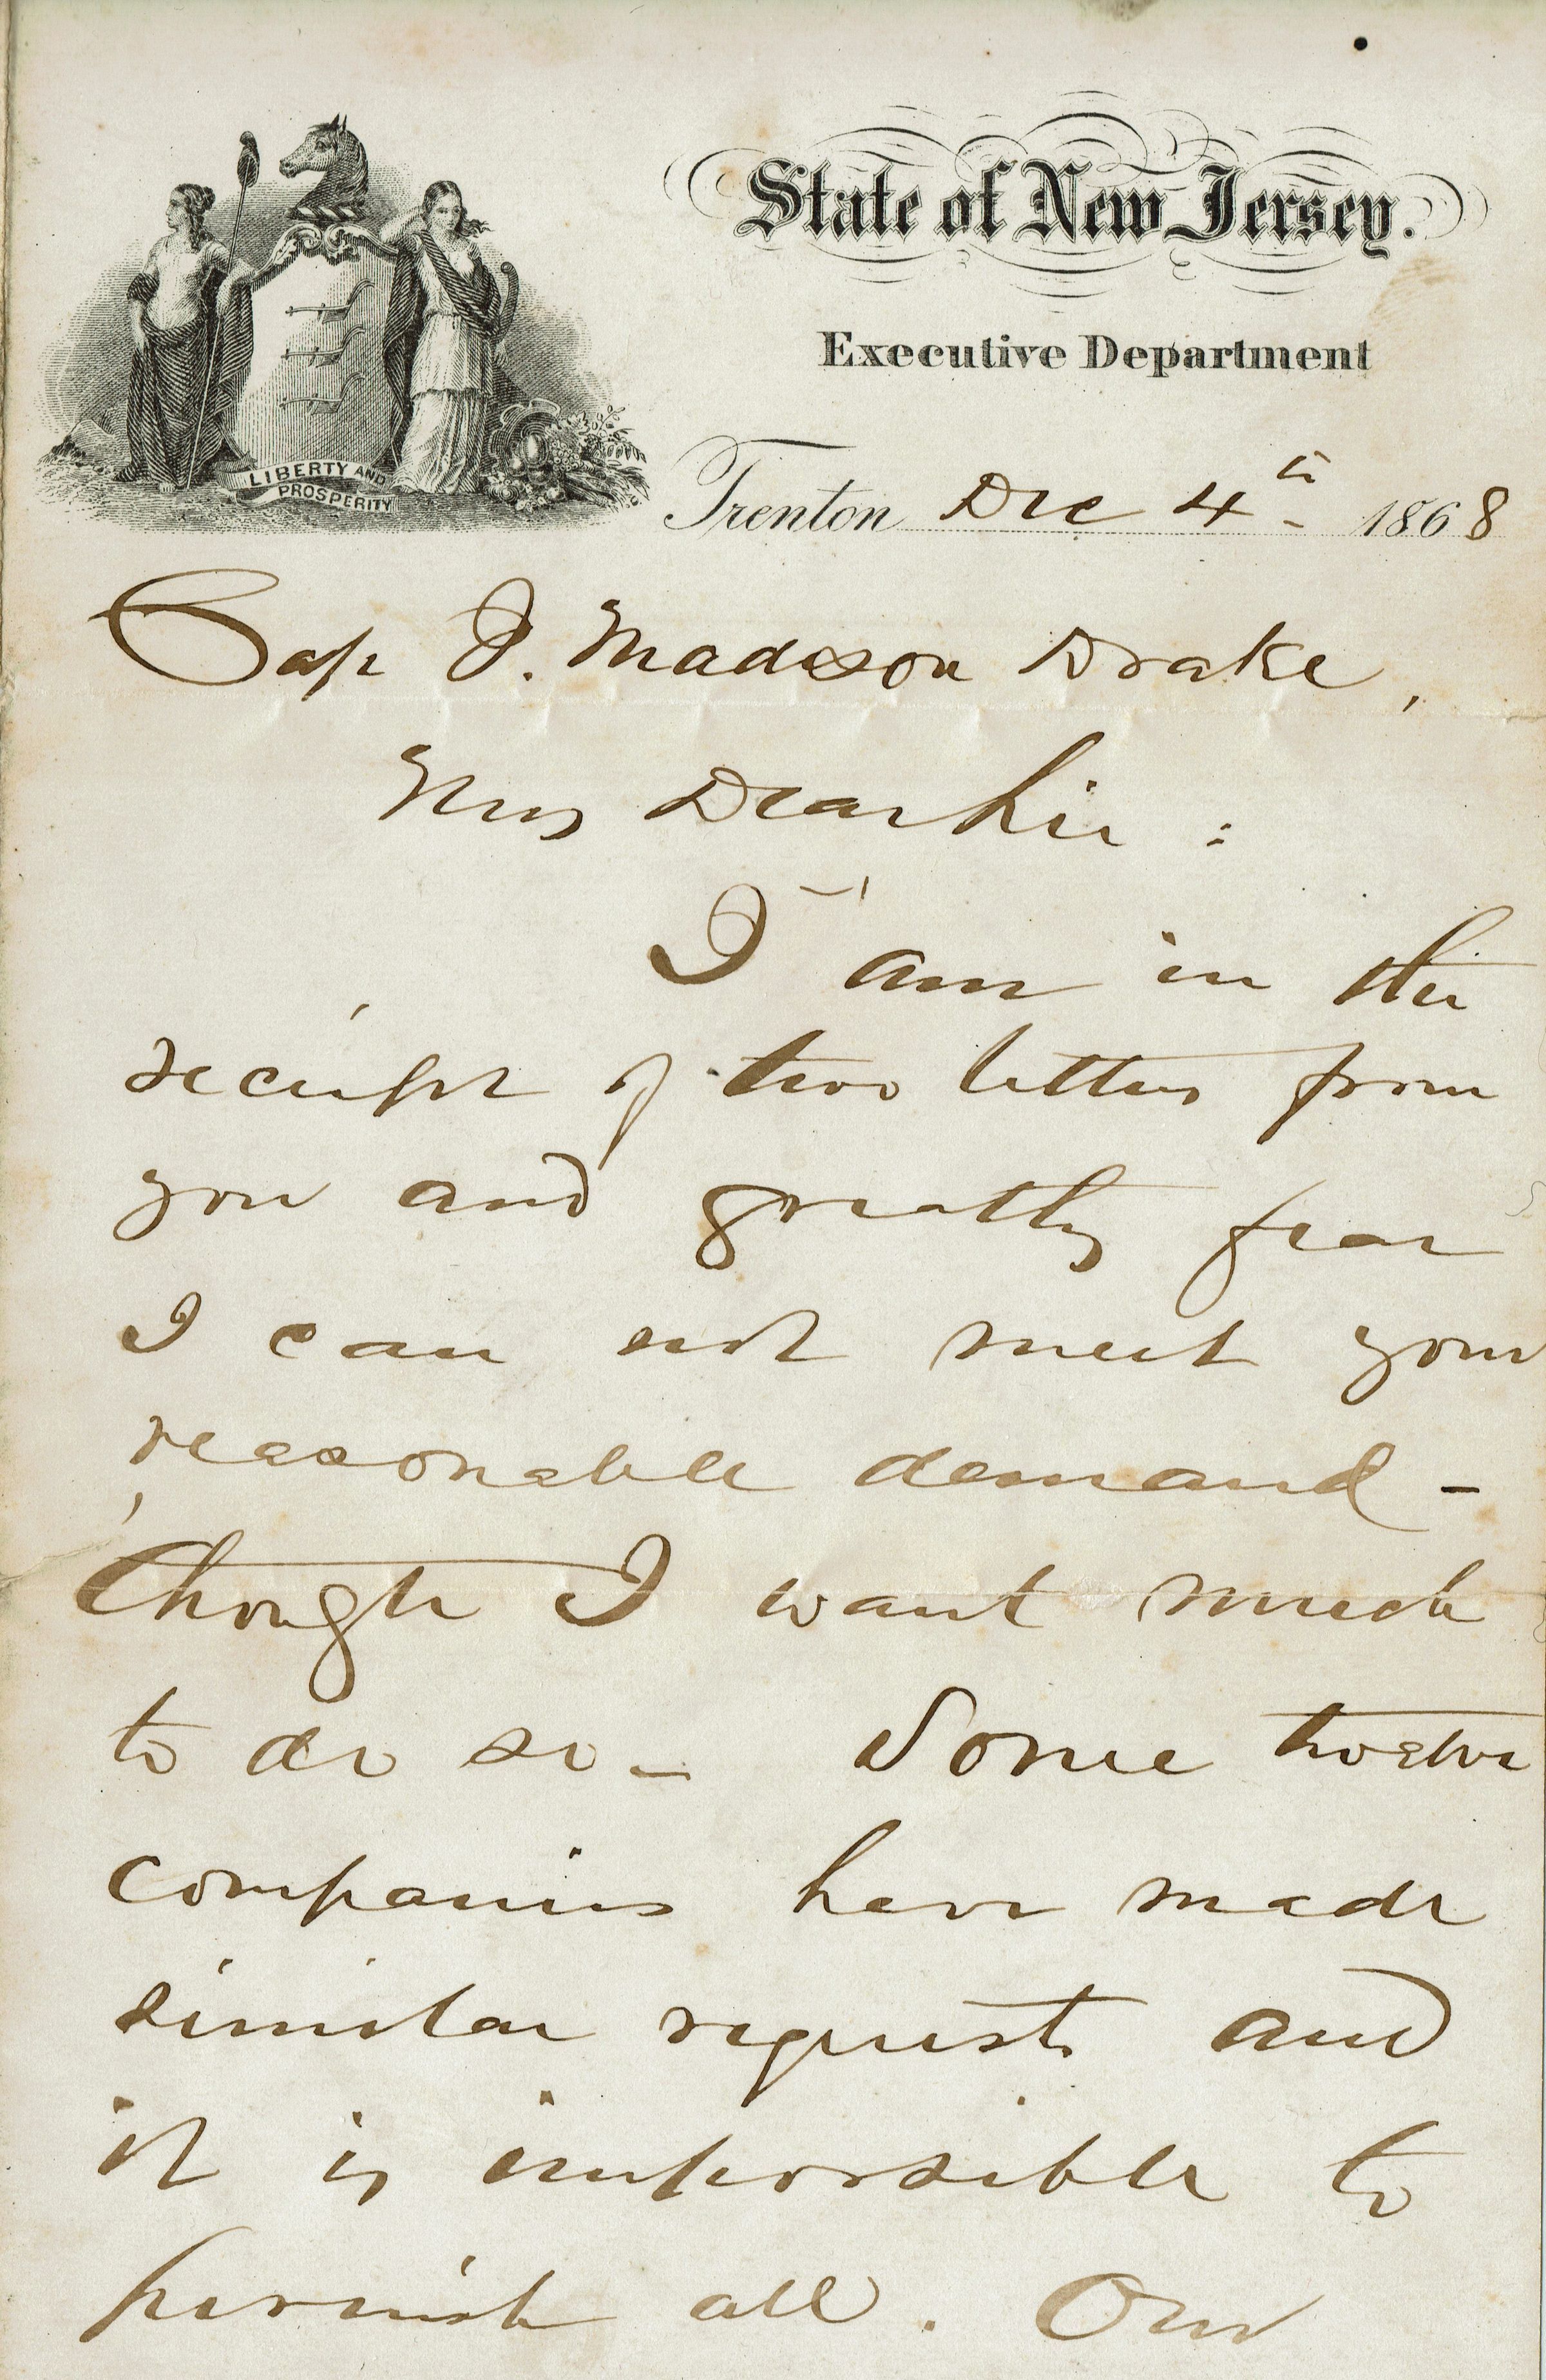 State of New Jersey.
Executive Department
LIBERTY AND
PROSPERITY
Trenton Dec 4th 1868
Cap J. Madison Drake,
My Dear Sir:
I am in the
receipt of two letters from
you and greatly fear
I can not meet your
reasonable demand -
though I want much
to do so - Some twelve
companies have made
similar requests and
it is impossible to
furnish all. Our